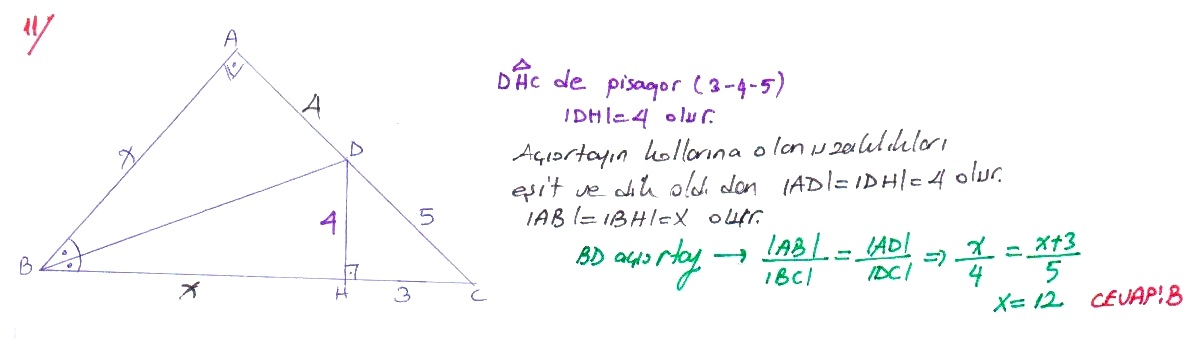 11/
A
DHC de pisagor (3-4-5)
4
|DH|=4 olur.
x
D
Açıortayın kollarına olan uzaklıkları
eşit ve dik old. dan |AD|=|DH|=4 olur.
4
5
|AB|=|BH|=x olur.
BD açıortay → |AB|/|BC| = |AD|/|DC| ⇒ x/4 = x+3/5
B
x
H
3
C
x=12 CEVAP:B